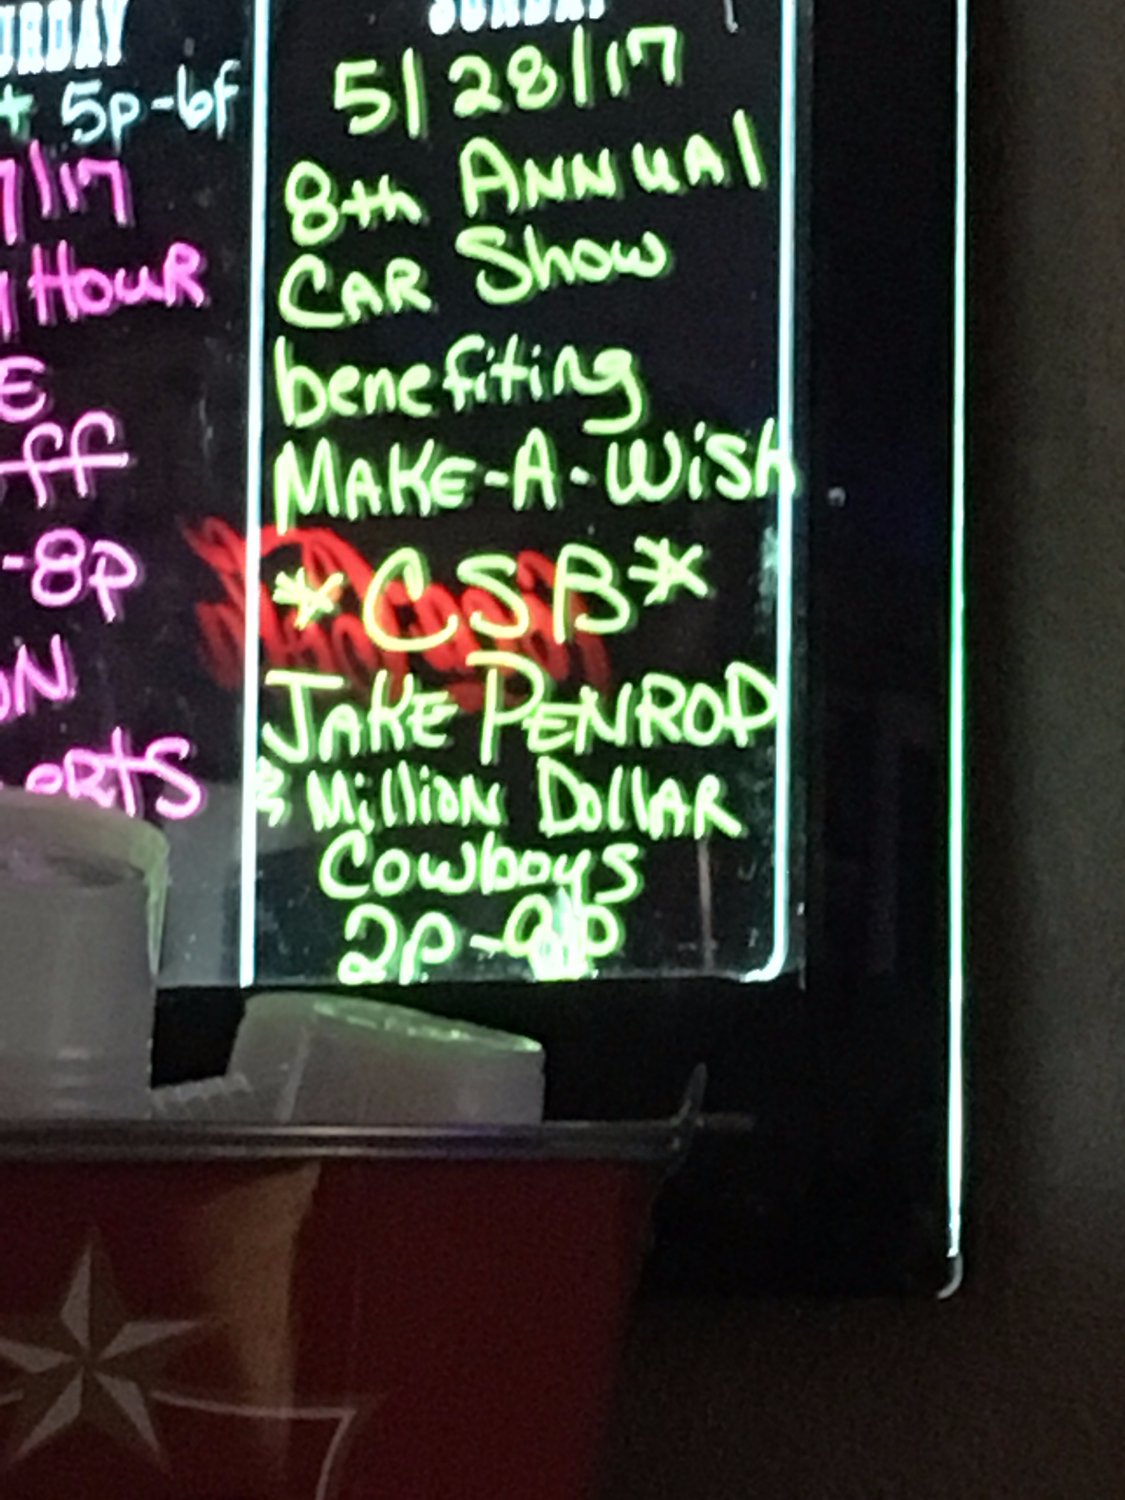 + 5p-6f
7/17
Hour
E
ff
-8p
ON
ERTS
SUNDAY
5/28/17
8th ANNUAL
CAR Show
benefiting
MAKE-A-WiSH
*CSB*
JAKE PENROD
& Million DollAR
Cowboys
2p-